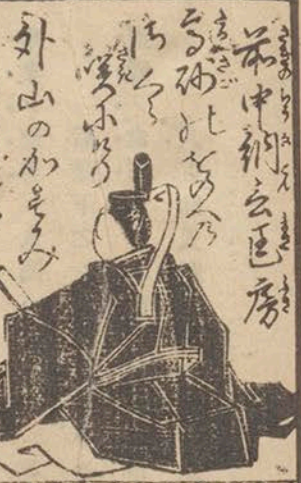 前中納言匡房
高砂のをのへの
さくら
咲にけり
外山のかすみ